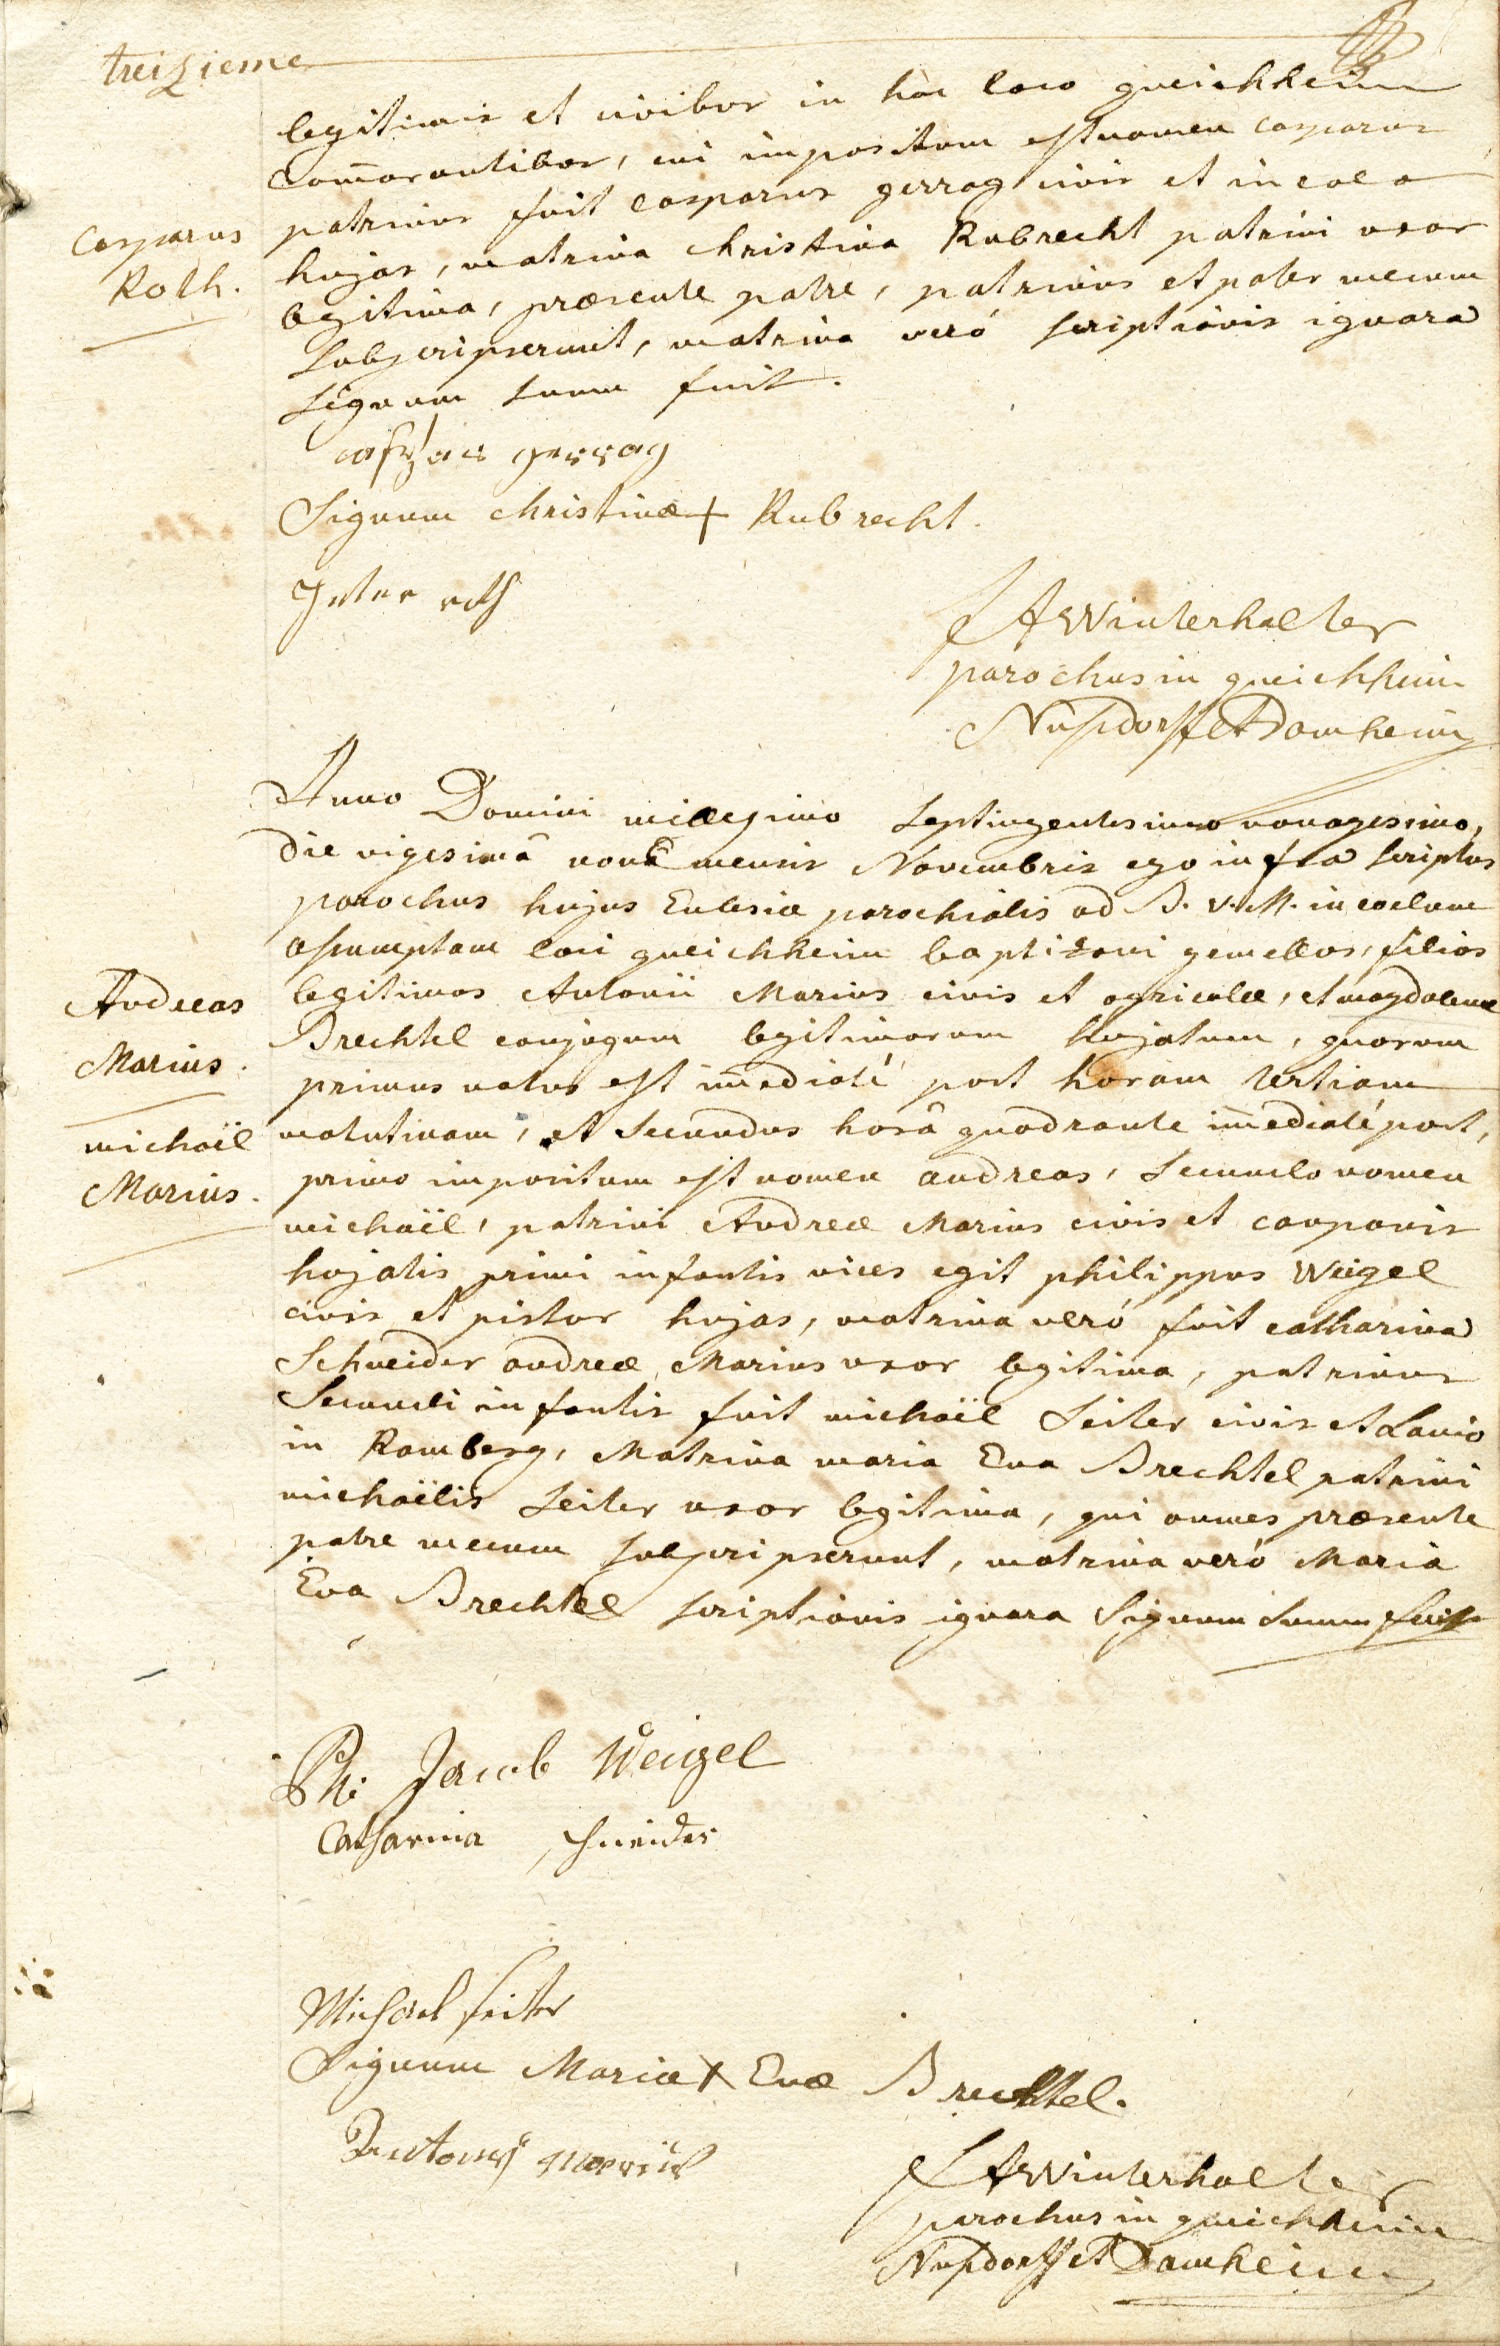 treizieme
legitimis et civibus in hoc loco queichheim
com̄orantibus, cui impositum est nomen casparus
Casparus
Roth.
patrinus fuit casparus gerrag civis et incola
hujas, matrina christina Rubrecht patrini uxor
legitima, præsente patre, patrinus et pater mecum
subscripserunt, matrina veró scriptionis ignara
signum suum fecit.
casper gerrag
Signum christinæ + Rubrecht.
Peter roth
FAWinterhalter
parochus in queichheim
Nusdorff et Damheim
Anno Domini millesimo septingentesimo nonagesimo,
die vigesimâ nonâ mensis Novembris ego infra scriptus
parochus hujus Eclesiæ parochialis ad B. V. M. in coelum
assumptam loci queichheim baptizavi gemellos, filios
Andreas
Marius.
michaël
Marius.
legitimos Antonii Marius civis et agricolæ, et magdalenæ
Brechtel conjugum legitimorum hujatum, quorum
primus natus est im̄ediaté post horam tertiam
matutinam, et secundus horâ quadrante im̄ediaté post,
primo impositum est nomen andreas, secundo nomen
michaël, patrini Andreæ Marius civis et cauponis
hujatis primi infantis vices egit philippus Weigel
civis et pistor hujas, matrina veró fuit catharina
Schneider andreæ Marius uxor legitima, patrinus
secundi infantis fuit michaël Seiter civis et Lanio
in Ramberg, Matrina maria Eva Brechtel patrini
michaëlis Seiter uxor legitima, qui omnes præsente
patre mecum subscripserunt, matrina veró Maria
Eva Brechtel scriptionis ignara signum suum fecit
Ph: Jacob Weigel
Catharina schneider
Michael seiter
Signum Mariæ + Evæ Brechtel.
Antoni Marius
FAWinterhalter
parochus in queichheim
Nusdorff et Damheim